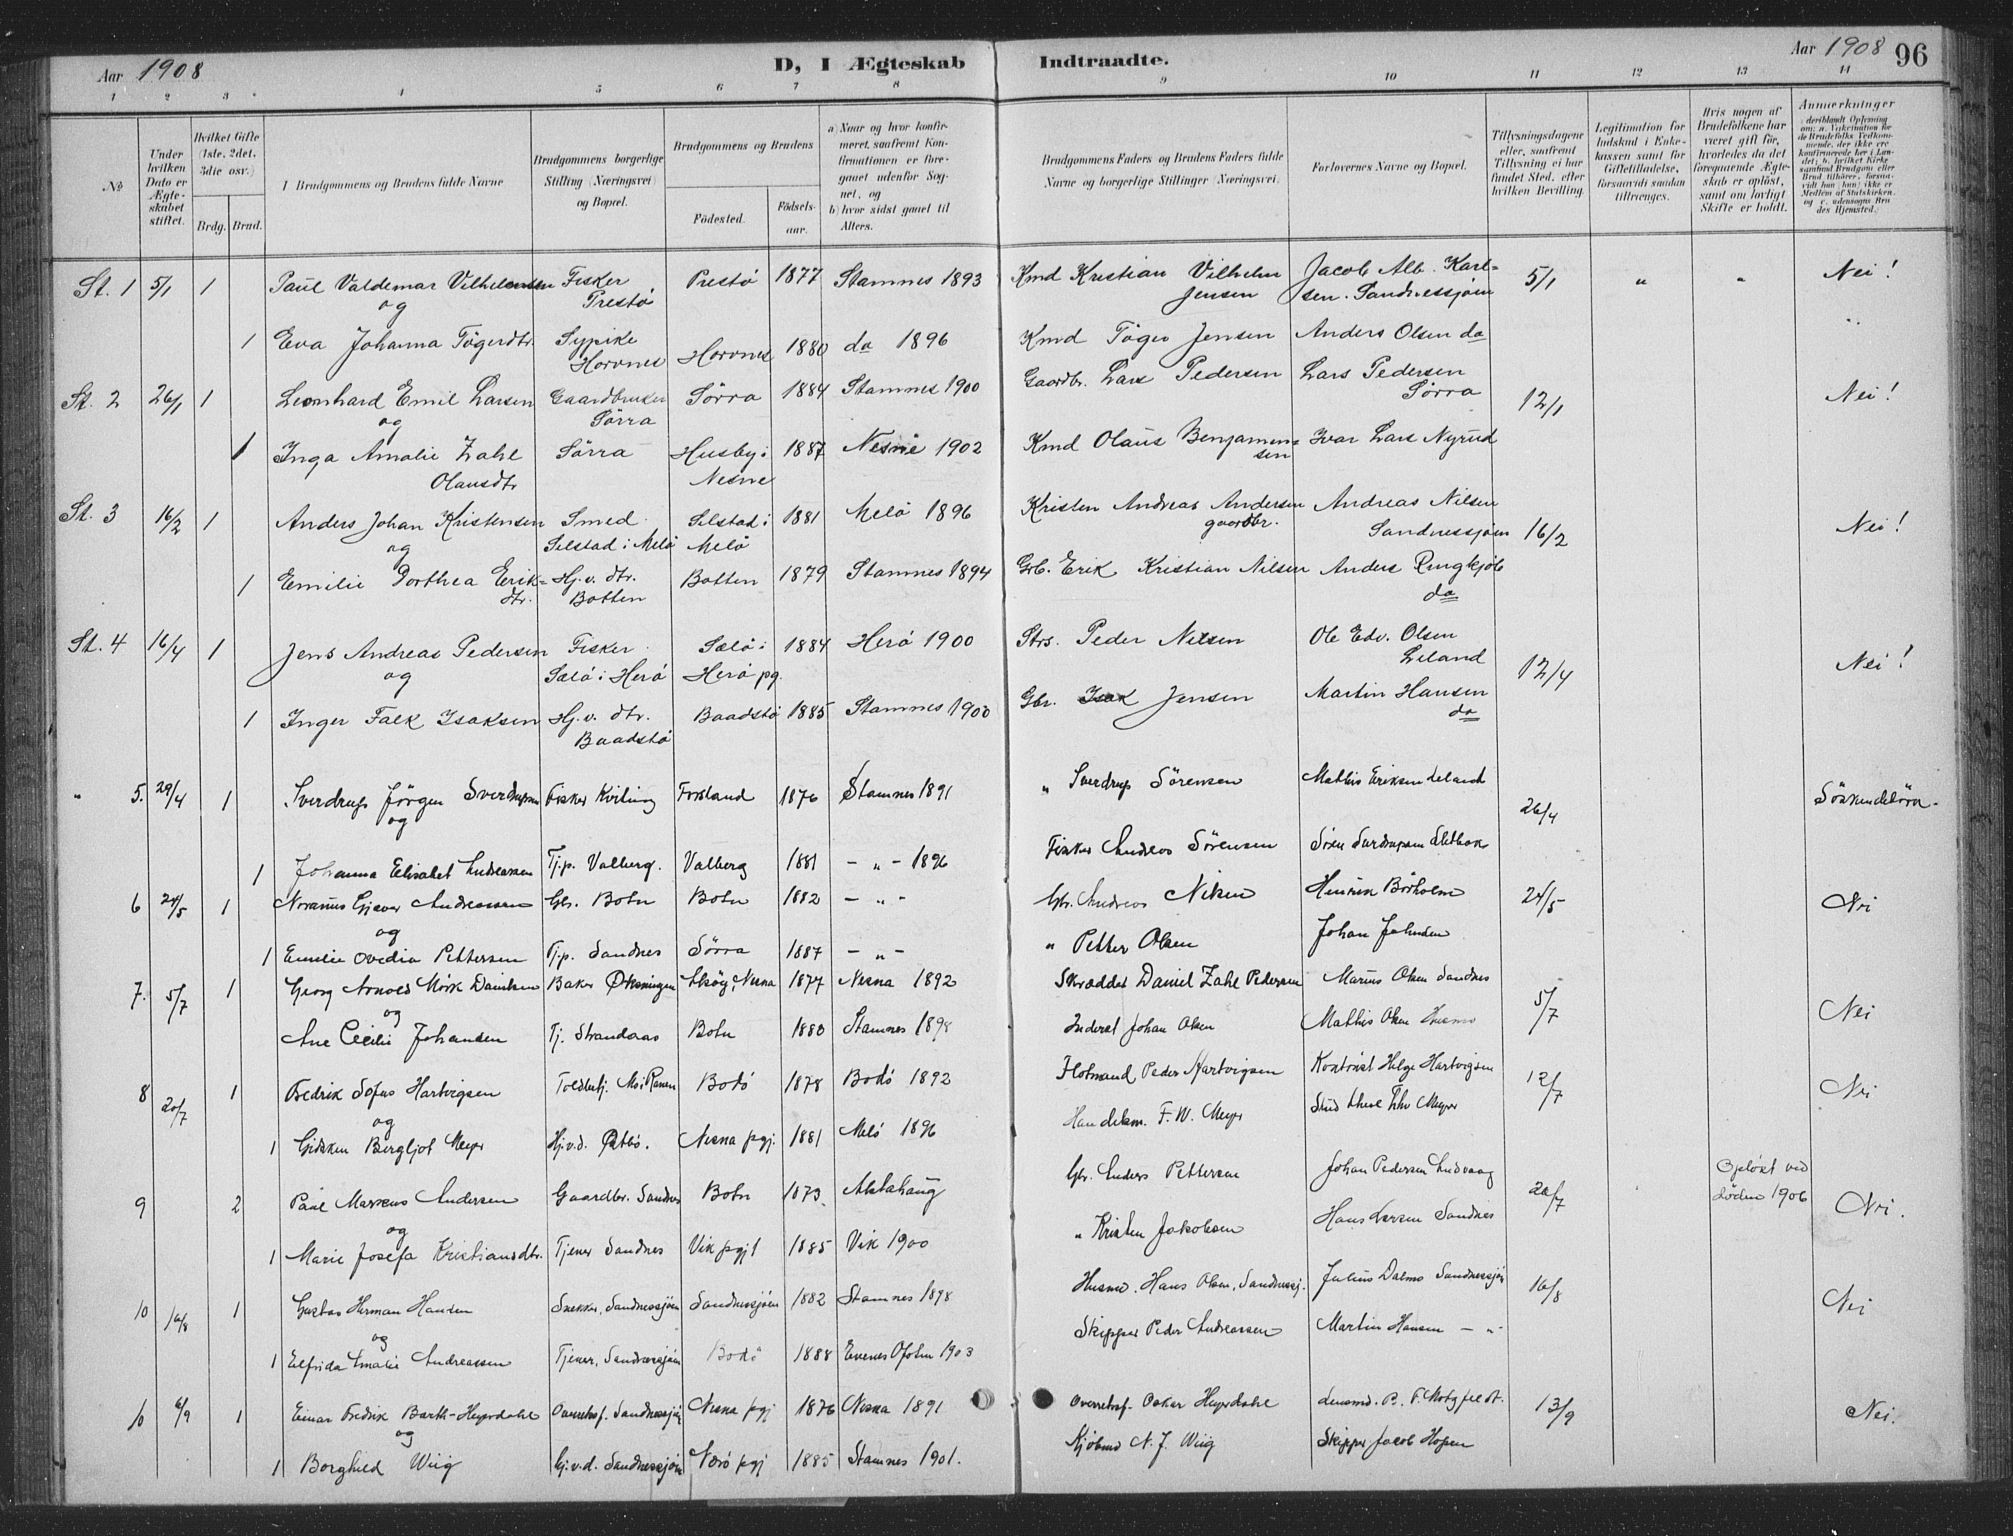 Aar 1908
D, I Ægteskab Indtraadte.
Aar 1908 96
1 2 3 4 5 6 7 8 9 10 11 12 13 14
№
Under hvilken Dato er Ægteskabet stiftet.
Hvilket Gifte (1ste, 2det, 3die osv.)
Brdg. Brud.
Brudgommens og Brudens fulde Navne
Brudgommens borgerlige Stilling (Næringsvei) og Bopæl.
Brudgommens og Brudens
Födested.
Födselsaar.
a) Naar og hvor konfirmeret, saafremt Konfirmationen er foregaaet udenfor Sognet, og
b) hvor sidst gaaet til Alters.
Brudgommens Faders og Brudens Faders fulde Navne og borgerlige Stillinger (Næringsvei).
Forlovernes Navne og Bopæl.
Tillysningsdagene eller, saafremt Tillysning ei har fundet Sted, efter hvilken Bevilling.
Legitimation for Indskud i Enkekassen samt for Giftetilladelse, forsaavidt saadan tiltrænges.
Hvis nogen af Brudefolkene har været gift för, hvorledes da det foregaaende Ægteskab er oplöst, samt om lovligt Skifte er holdt.
Anmerkninger
St. 1 5/1 1 Paul Valdemar Vilhelmsen Fisker Prestö Prestö 1877 Stamnes 1893 Kmd Kristian Vilhelm Jensen Jacob Alb. Karlsen. Sandnessjöen 5/1 " " Nei!
og
1 Eva Johanna Tögerdtr. Sypike Horvnes Horvnes 1880 do 1896 Kmd Töger Jensen Anders Olsen do
St. 2 26/1 1 Leonhard Emil Larsen Gaardbruker Sörra Sörra 1884 Stamnes 1900 Gaardbr. Lars Pedersen Lars Pedersen Sörra 12/1 Nei!
og
1 Inga Amalie Zahl Olausdtr Sörra Husby i Nesne 1887 Nesne 1902 Kmd Olaus Benjaminsen Ivar Lars Nyrud
St. 3 16/2 1 Anders Johan Kristensen Smed Selstad i Melö Selstad i Melö 1881 Melö 1896 Kristen Andreas Andersen gaardbr. Andreas Nilsen Sandnessjöen 16/2 Nei!
og
1 Emilie Dorthea Erikdtr. Hj. v. dtr. Botten Botten 1879 Stamnes 1894 Grb. Erik Kristian Nilsen Anders Ringkjöb do
St. 4 16/4 1 Jens Andreas Pedersen Fisker Sælö i Herö Sælö i Herö pg. 1884 Herö 1900 Strs. Peder Nilsen Ole Edv. Olsen Leland 12/4 Nei!
og
1 Inger Falk Isaksen Hj. v. dtr. Baadstö Baadstö 1885 Stamnes 1900 Gbr. Isak Jensen Martin Hansen do
" 5. 29/4 1 Sverdrup Jörgen Sverdrupsen Fisker Kviting Forsland 1876 Stamnes 1891 " Sverdrup Sörensen Mathis Eriksen Leland 26/4 Söskendebörn.
og
1 Johanna Elisabet Andreassen Tj.p. Valberg. Valberg 1881 – " – 1896 Fisker Andreas Sörensen Sören Sverdrupsen
6 24/5 1 Andreassen Gbr. Botn Botn 1882 – " – Gbr. Andreas Nilsen Henrik Börholm 24/5 Nei
og
1 Emilie Ovedia Pettersen Tj.p. Sandnes Sörra 1887 – " – " Petter Olsen Johan Johnsen
7. 5/7 1 Georg Arnold Mörk Danielsen Baker Öksningen Nesna 1877 Nesna 1892 Skrædder Daniel Zahl Pedersen Marius Olsen Sandnes 5/7 Nei
og
Ane Cecilie Johansen Tj. Strandaas Botn 1880 Stamnes 1898 Inderst Johan Olsen Mathis Olsen
8 20/7 1 Fredrik Sofus Hartvigsen Toldbetj. Mo i Ranen Bodö 1878 Bodö 1892 Flotmand Peder Hartvigsen Kontorist Helge Hartvigsen 12/7 Nei
og
1 Gidsken Bergljot Meyer Hj.v.d. Nesna pgj. 1881 Melö 1896 Handelsm. F. W. Meyer Stud Meyer
9 2 Paul Markus Andersen Gaardbr. Sandnes Botn 1873 Alstahaug Gbr. Anders Pettersen Johan Pedersen 20/7 Oplöst ved döden 1906 Nei.
og
1 Marie Josefa Kristiansdtr. Tjener Sandnes Vik pgjl 1885 Vik 1900 " Kristen Jakobsen Hans Larsen Sandnes
10 16/8 1 Gustav Herman Hansen Snekker, Sandnessjöen Sandnessjöen 1882 Stamnes 1898 Husmd. Hans Olsen, Sandnessj. Julius Dalmo Sandnessjöen 16/8 Nei
og
1 Elfrida Amalie Andreassen Tjener, Sandnessjöen Bodö 1888 Evenes Ofoten 1903 Skipper Peder Andreassen Martin Hansen – " –
10 6/9 1 Einar Fredrik Barth-Heyerdahl Overretssf. Sandnessjöen Nesna pgj 1876 Nesna 1891 Overretssf. Oskar Heyerdahl Lensmd. P. F. Motzfeldt. 13/9 Nei.
og
1 Borghild Wiig Hj.v.d. Sandnessjöen Nærö pgj 1885 Stamnes 1901. Kjöbmd N. J. Wiig Skipper Jacob Hopen